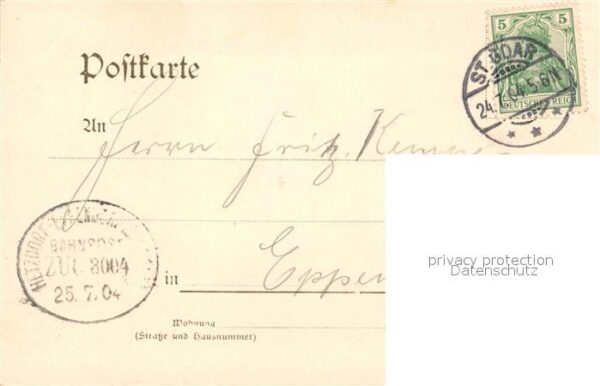 5 5
DEUTSCHES REICH
ST. GOAR
24.7.04. 5-6N
Postkarte
An
Herrn Fritz
BAHNPOST
ZUG 3004
25.7.04
in Eppen
privacy protection
Datenschutz
Wohnung
(Straße und Hausnummer)